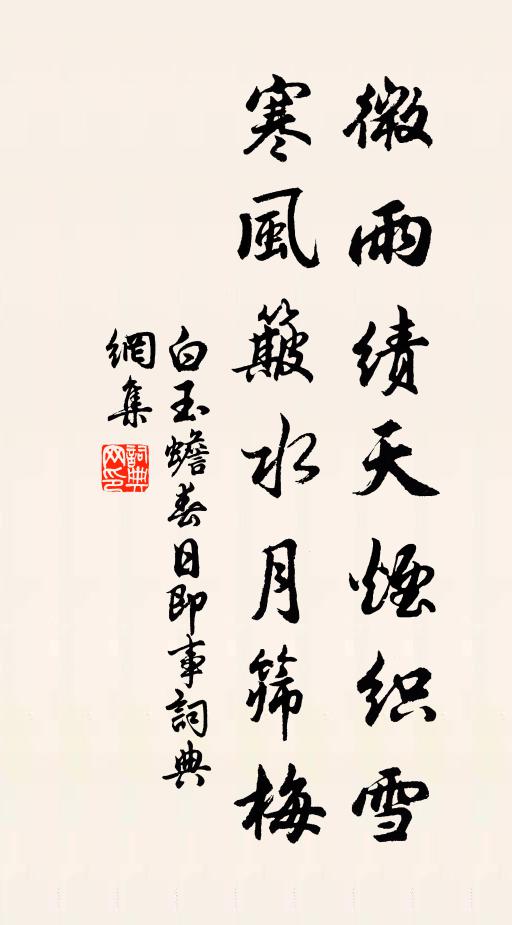 微雨績天煙织雪
寒風簸水月篩梅
白玉蟾春日即事詞典
網集
詞典
网印